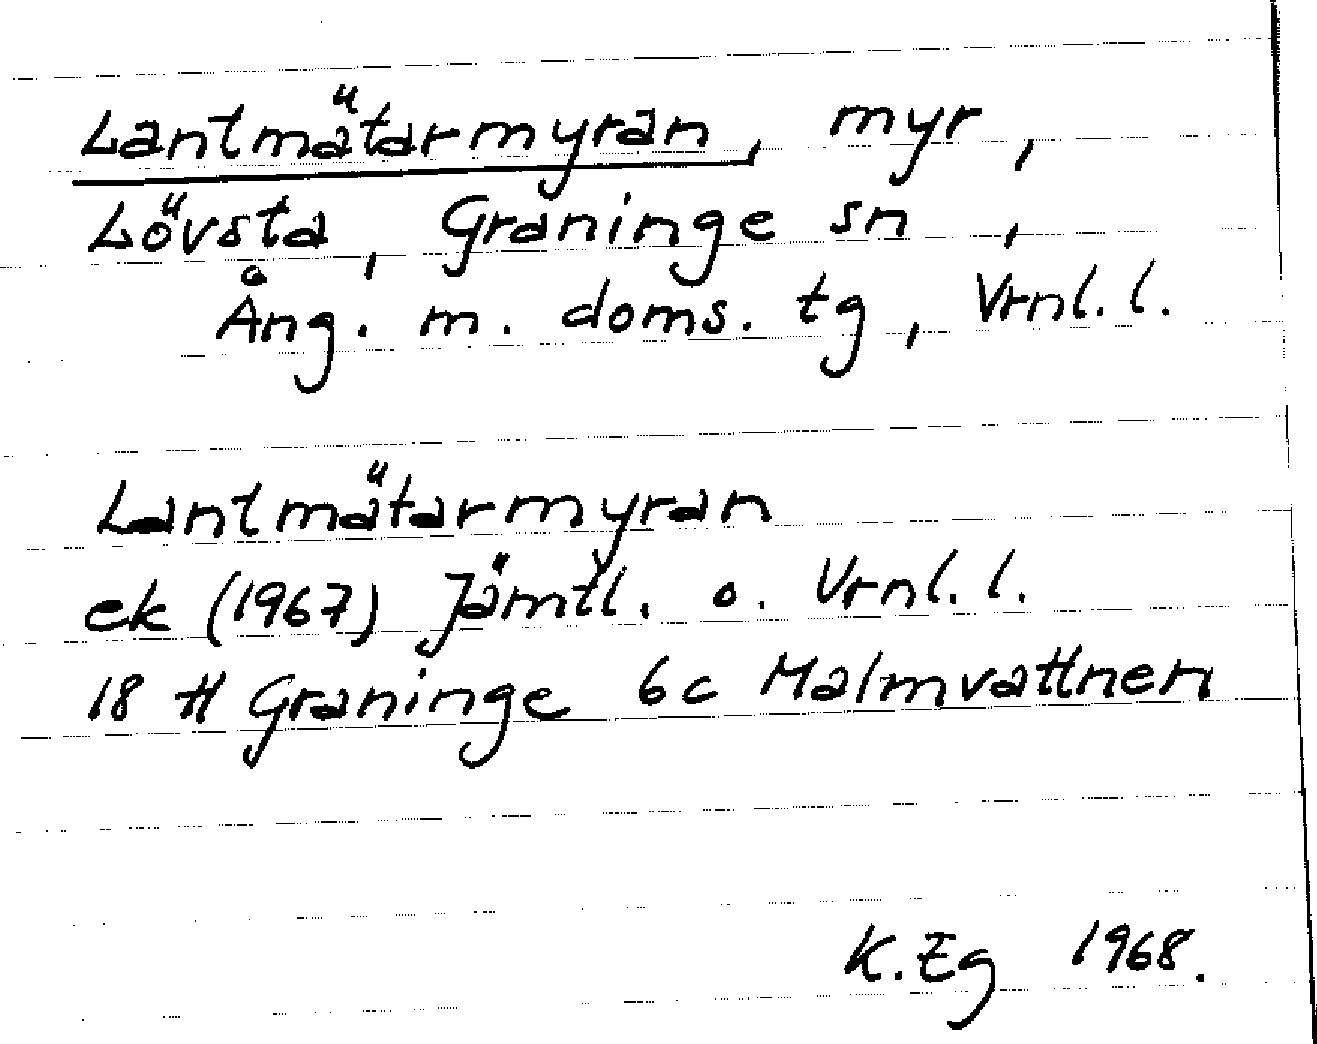 Lantmätarmyran, myr,
Lövsta, Graninge sn,
Ång. m. doms. tg, Vrnl. l.
Lantmätarmyran
ek (1967) Jämtl. o. Vrnl. l.
18 H Graninge 6c Malmvattnen
K. Eg 1968.